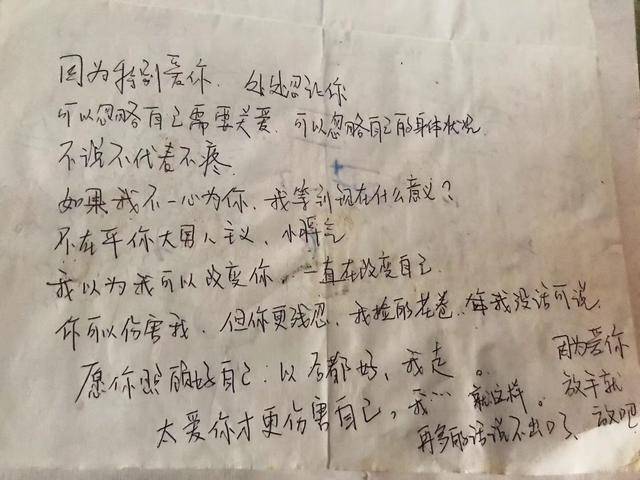 因为特别爱你.处处忍让你
可以忽略自己需要关爱.可以忽略自己的身体状况.
不说不代表不疼.
如果我不一心为你.我等到现在什么意义?
不在乎你大男人主义、小脾气
我以为我可以改变你.一直在改变自己.
你可以伤害我.但你更残忍.我捡的卷..我没话可说.
愿你照顾好自己:以后都好,我走。
太爱你才更伤害自己,我…就这样。
因为爱你
放手就
再多的话说不出口了、放吧